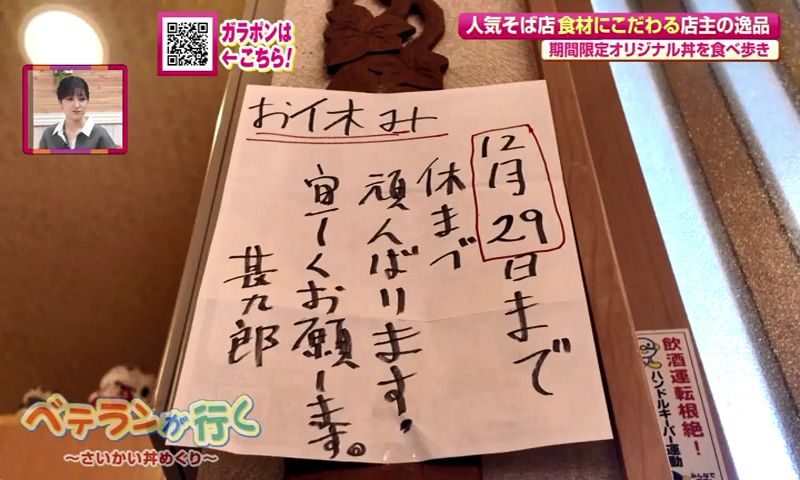 ガラポンは
←こちら!
人気そば店 食材にこだわる店主の逸品
期間限定オリジナル丼を食べ歩き
お休み
12月29日まで
休まず
頑んばります!
宜しくお願します。
甚九郎
ベテランが行く
〜さいかい丼めぐり〜
飲酒運転根絶!
ハンドルキーパー運動
みんなで